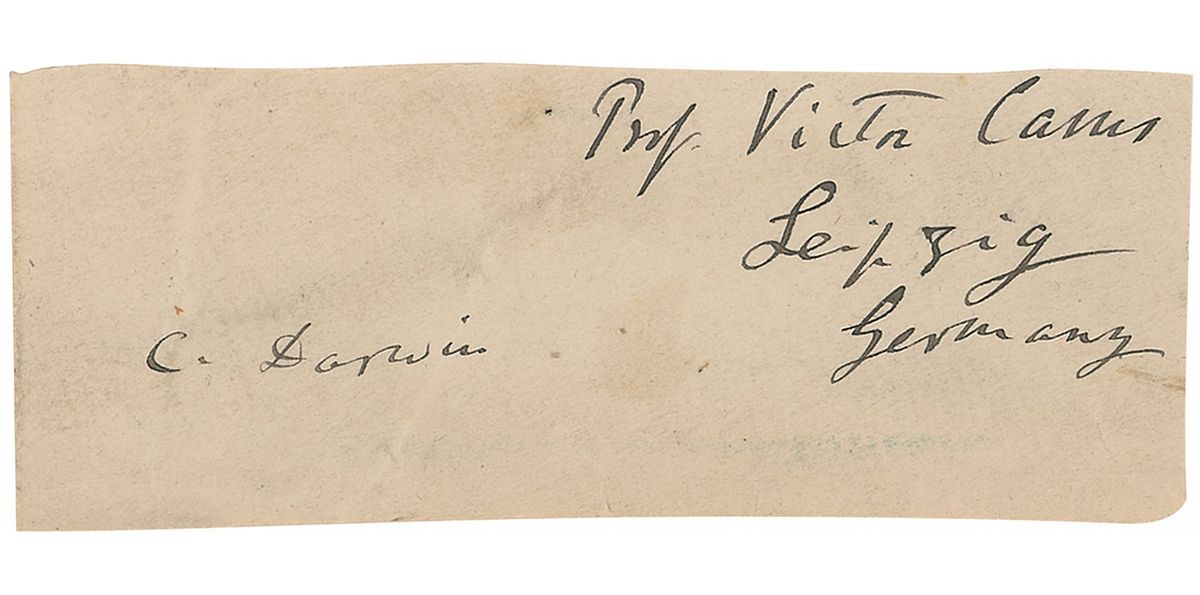 Prof. Victor Carus
Leipzig
Germany
C. Darwin